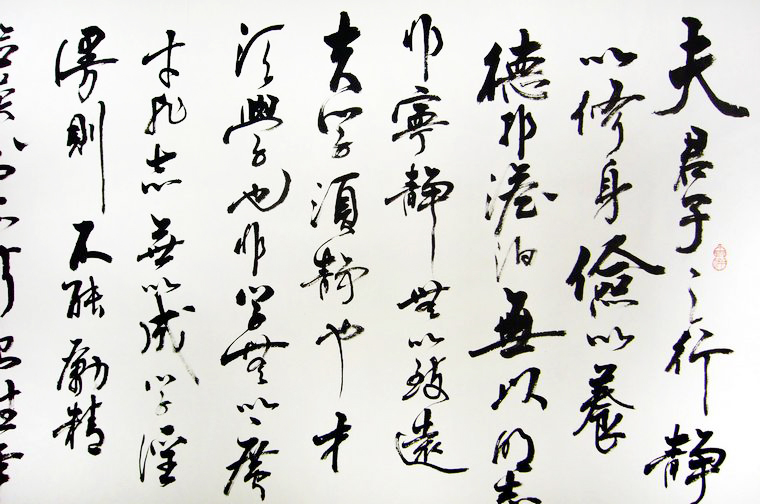 夫君子之行靜
以修身儉以養
德非澹泊無以明志
非寧靜無以致遠
夫学須静也才
須學也非学無以廣
才非志無以成学淫
漫則不能勵精